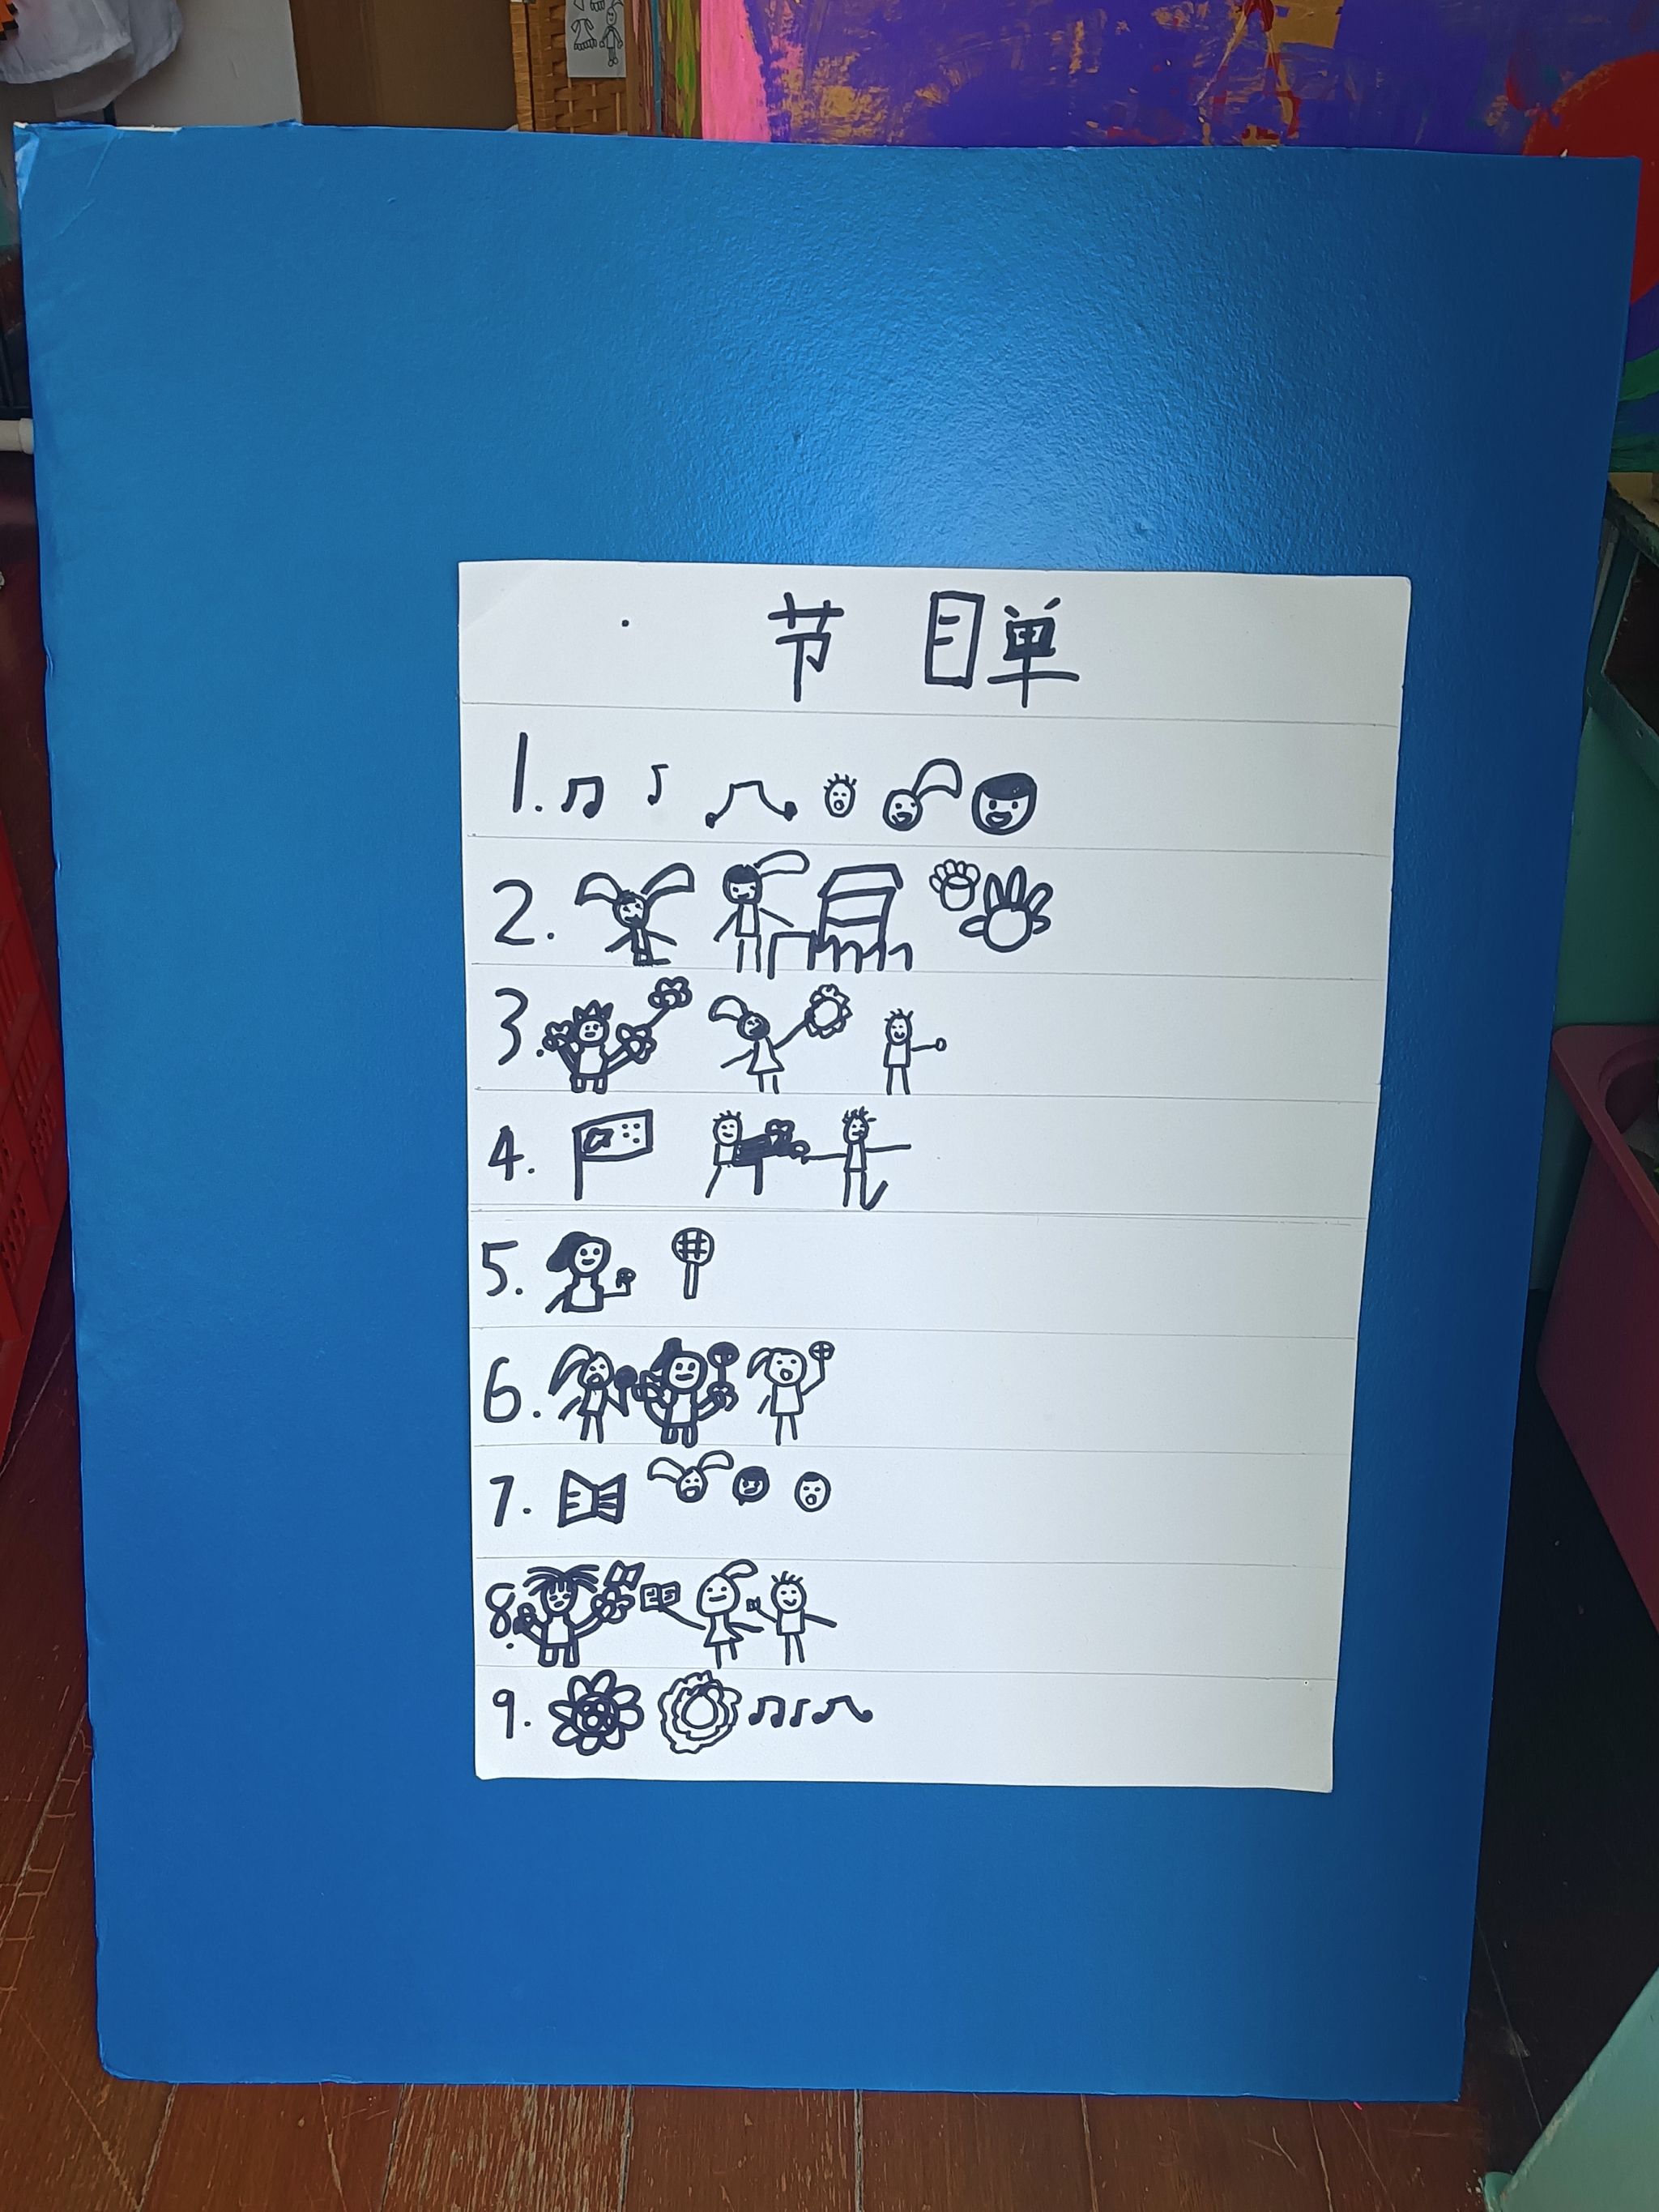 节目单
1.
2.
3.
4.
5.
6.
7.
8.
9.